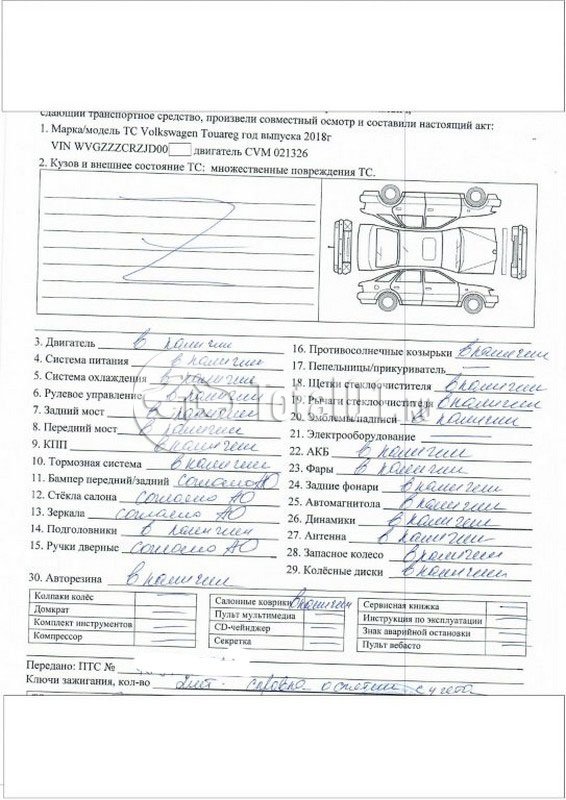 сдающий транспортное средство, произвели совместный осмотр и составили настоящий акт:
1. Марка/модель ТС Volkswagen Touareg год выпуска 2018г
VIN WVGZZZCRZJD00 двигатель CVM 021326
2. Кузов и внешнее состояние ТС: множественные повреждения ТС.
3. Двигатель в наличии
4. Система питания в наличии
5. Система охлаждения в наличии
6. Рулевое управление в наличии
7. Задний мост в наличии
8. Передний мост в наличии
9. КПП в наличии
10. Тормозная система в наличии
11. Бампер передний/задний согласно АО
12. Стёкла салона согласно АО
13. Зеркала согласно АО
14. Подголовники в наличии
15. Ручки дверные согласно АО
16. Противосолнечные козырьки в наличии
17. Пепельницы/прикуриватель
18. Щетки стеклоочистителя в наличии
19. Рычаги стеклоочистителя в наличии
20. Эмблемы/надписи в наличии
21. Электрооборудование
22. АКБ в наличии
23. Фары в наличии
24. Задние фонари в наличии
25. Автомагнитола в наличии
26. Динамики в наличии
27. Антенна в наличии
28. Запасное колесо в наличии
29. Колёсные диски в наличии
30. Авторезина в наличии
Колпаки колёс
Домкрат
Комплект инструментов
Компрессор
Салонные коврики в наличии
Пульт мультимедиа
CD-чейнджер
Секретка
Сервисная книжка
Инструкция по эксплуатации
Знак аварийной остановки
Пульт вебасто
Передано: ПТС №
Ключи зажигания, кол-во 2шт. справка о снятии с учета